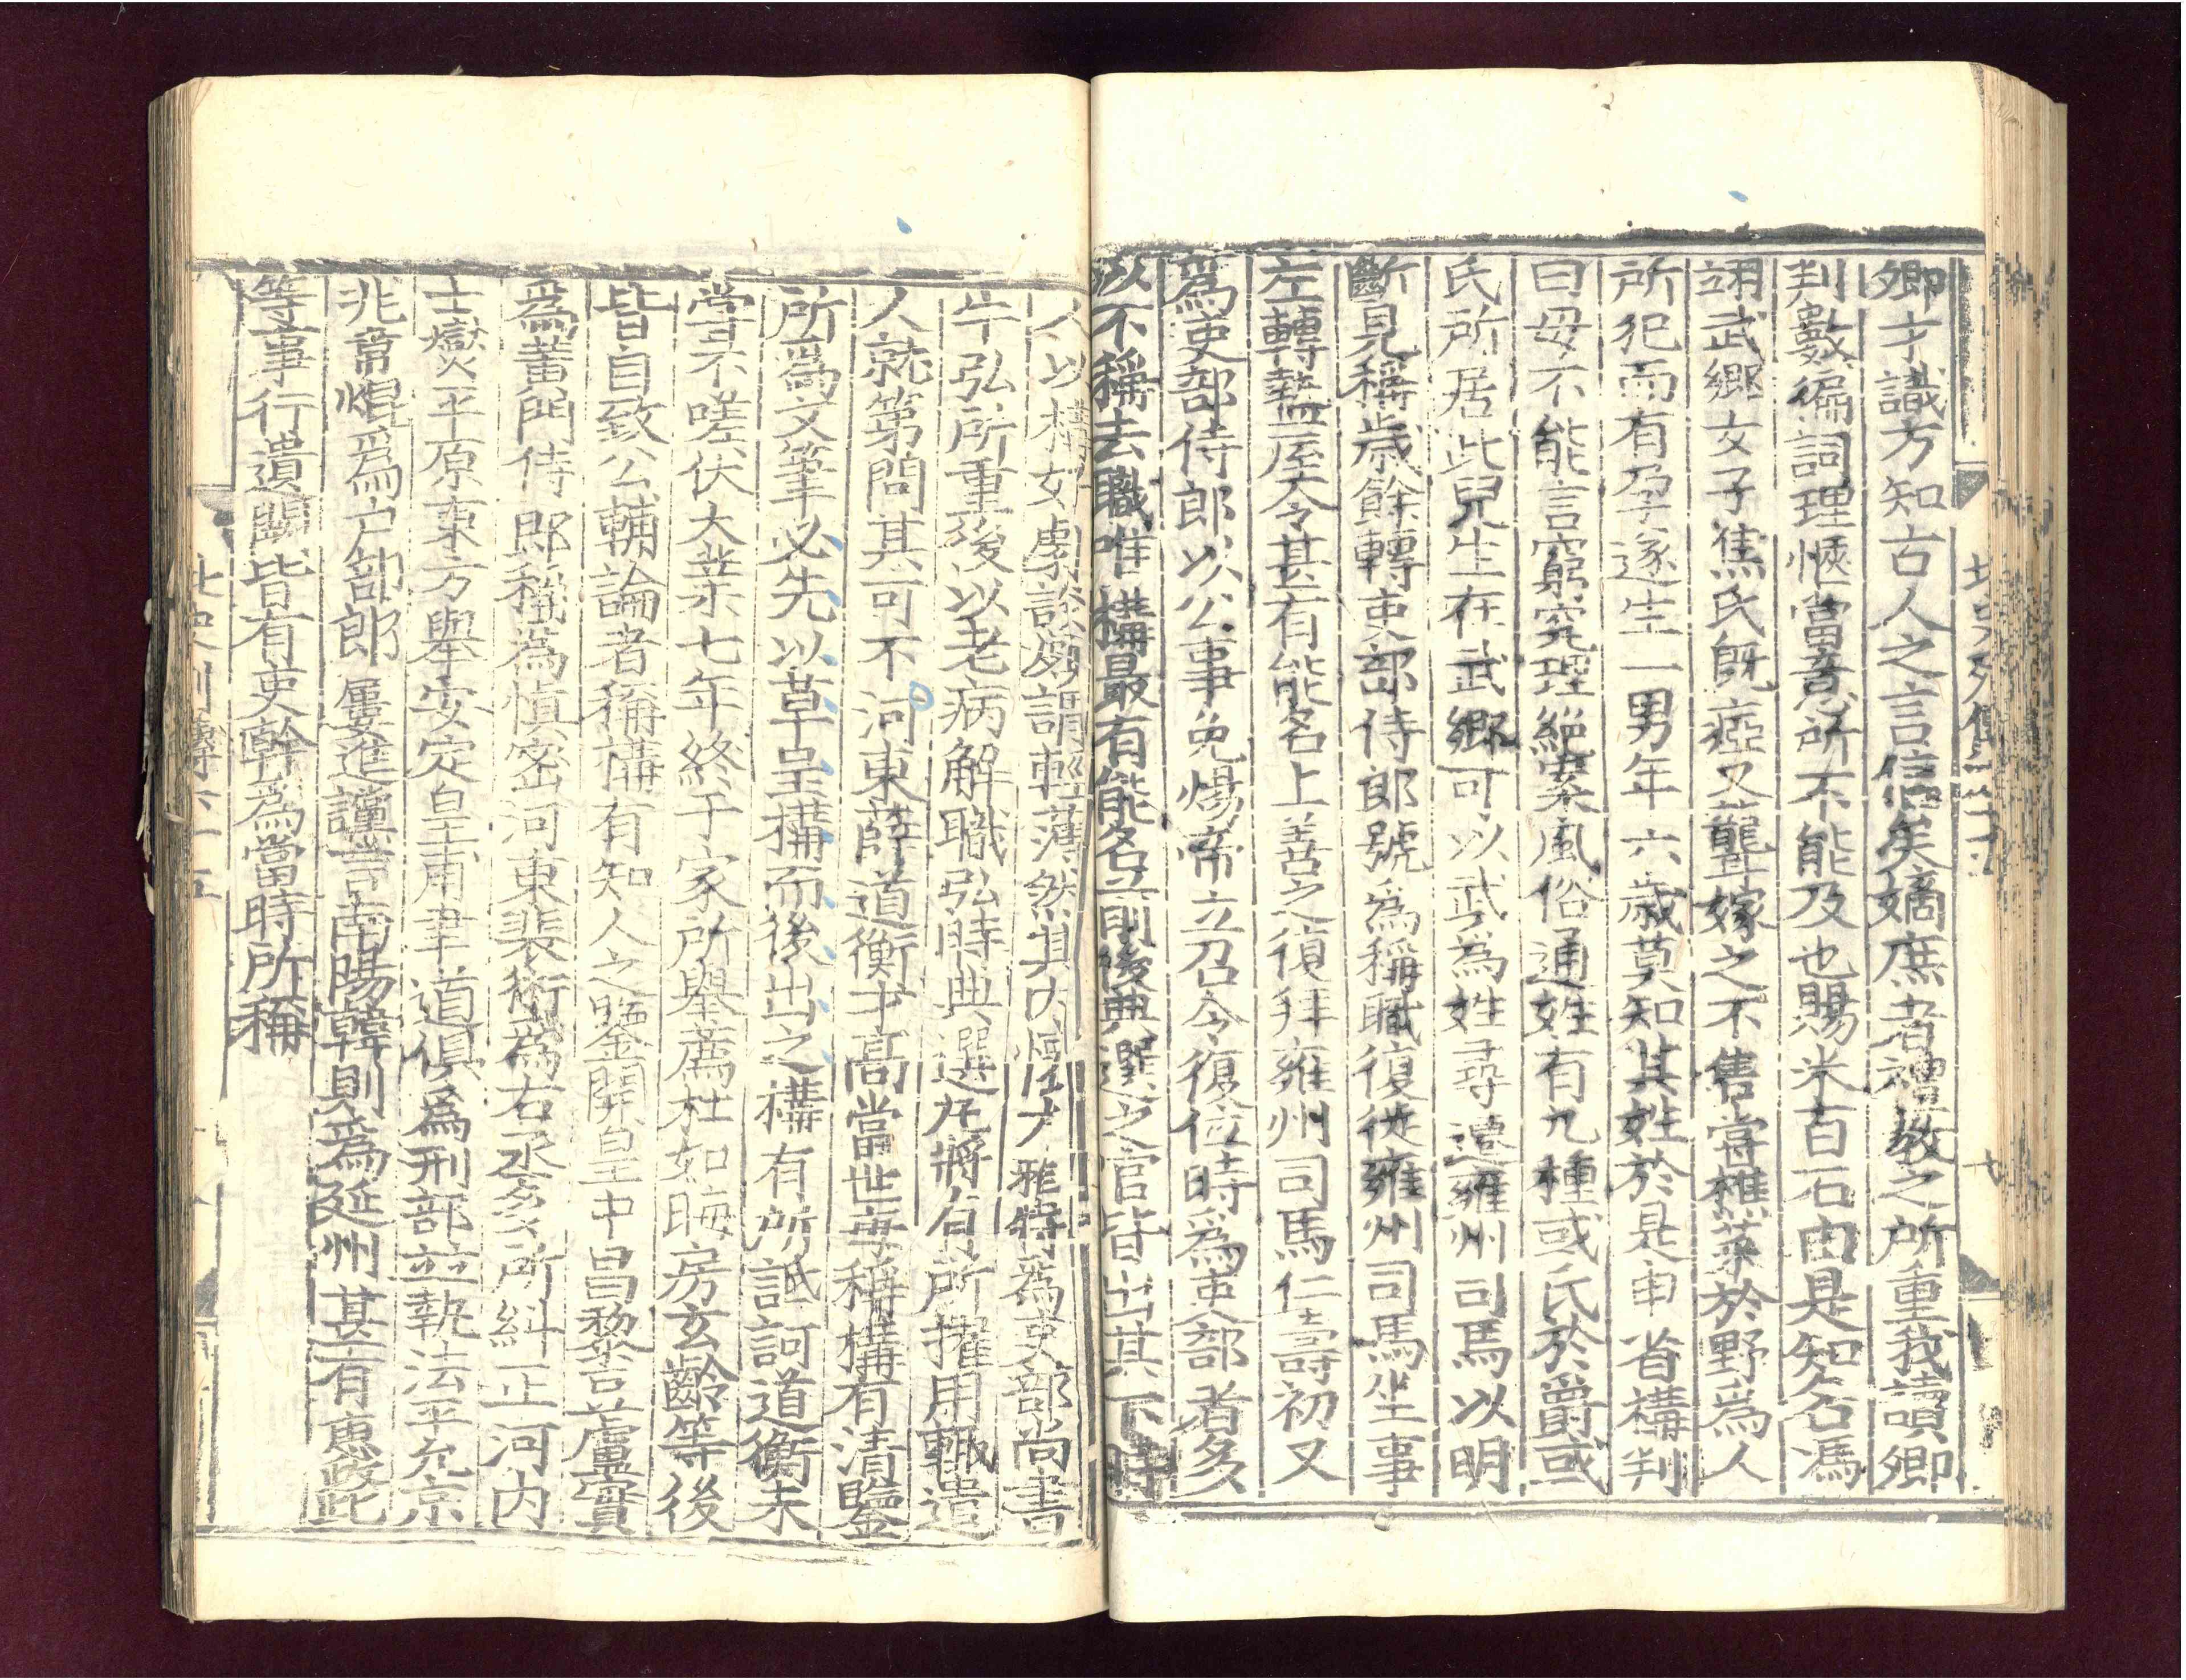 卿才識方知古人之言信矣嫡庶者禮教之所重我讀卿
判數徧詞理愜當意所不能及也賜米百石由是知名馮
翊武鄉女子焦氏既瘂又聾嫁之不售嘗樵菜於野爲人
所犯而有孕遂生一男年六歲莫知其姓於是申省構判
曰母不能言窮究理絕案風俗通姓有九種或氏於爵或
氏所居此兒生在武鄉可以武為姓尋遷雍州司馬以明
斷見稱歲餘轉吏部侍郎號爲稱職復徙雍州司馬坐事
左轉盩厔令甚有能名上善之復拜雍州司馬仁壽初又
爲吏部侍郎以公事免煬帝立召令復位時爲吏部者多
以不稱去職唯構最有能名前後典選之官皆出其下時
人以構好劇談頗謂輕薄然其內懷 雅特為吏部尚書
牛弘所重後以老病解職弘時典選凡將有所擢用輒遣
人就第問其可不河東薛道衡才高當世每稱構有清鑒
所爲文筆必先以草呈構而後出之構有所詆訶道衡未
嘗不嗟伏大業七年終于家所舉薦杜如晦房玄齡等後
皆自致公輔論者稱構有知人之鑒開皇中昌黎豆盧寔
為黃門侍郎稱為慎密河東裴術為右丞多所糾正河内
士燮平原東方舉安定皇甫聿道俱爲刑部並執法平允京
兆韋焜爲户部郎屢進讜言南陽韓則爲延州甚有惠政此
等事行遺闕皆有吏幹為當時所稱
北史列傳六十五